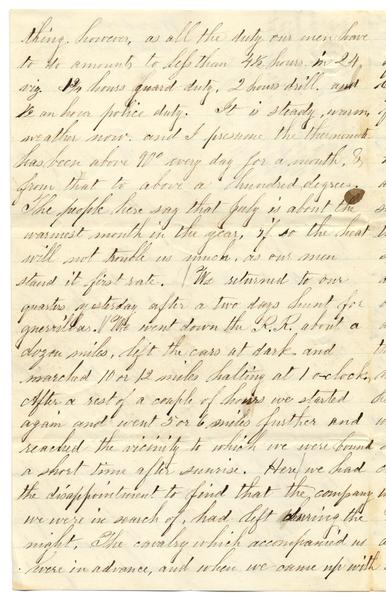 thing, however, as all the duty our men have
to do amounts to less than 4½ hours in 24,
viz. 1¾ hours guard duty, 2 hours drill, and
½ an hour police duty. It is steady, warm
weather now and I presume the thermomt.
has been above 90° every day for a month, &
from that to above a hundred degrees.
The people here say that July is about the
warmest month in the year, if so the heat
will not trouble us much, as our men
stand it first rate. We returned to our
quarters yesterday after a two days hunt for
guerrillas. We went down the R.R. about a
dozen miles, left the cars at dark and
marched 10 or 12 miles halting at 1 o-clock.
After a rest of a couple of hours we started
again and went 5 or 6 miles further and
reached the vicinity to which we were bound
a short time after sunrise. Here we had
the disappointment to find that the company
we were in search of, had left during the
night. The cavalry which accompanied us
were in advance, and when we came up with